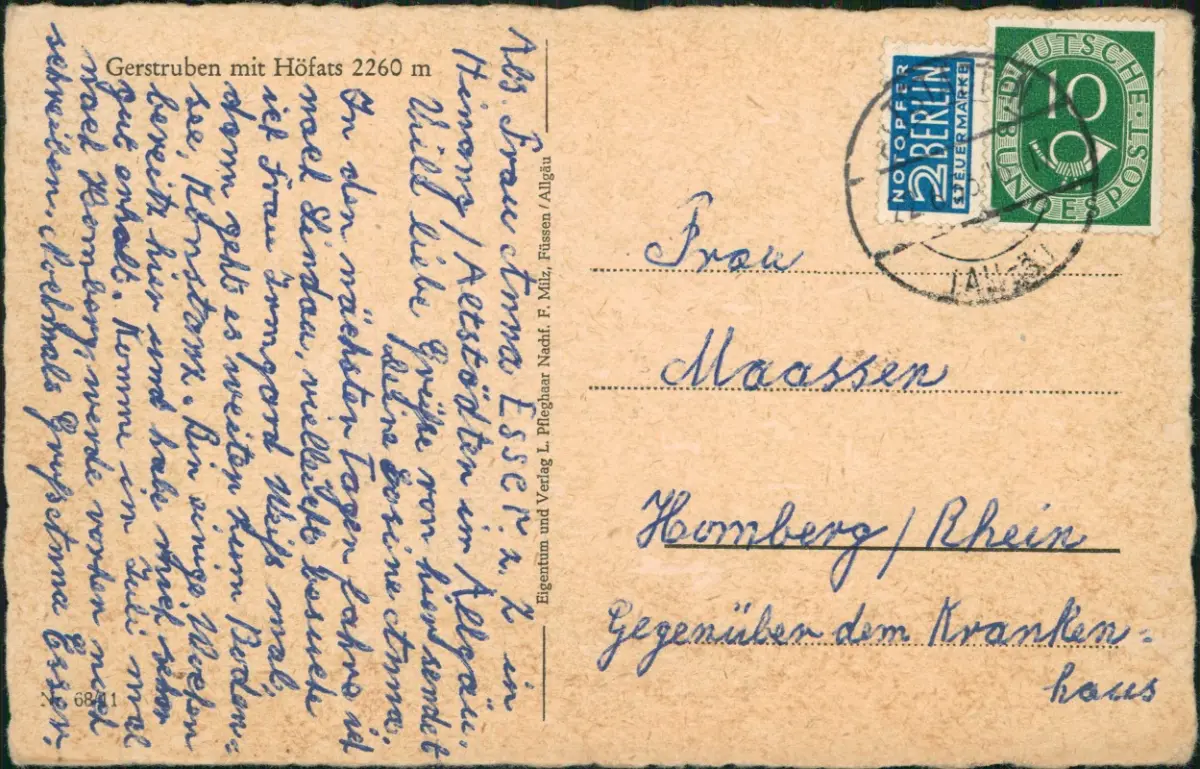 Gerstruben mit Höfats 2260 m
Abs. Frau Anna Esser. z. Z in
Hinang/Altstädten im Allgäu.
Viel liebe Grüße von hier sendet
Deine Cosine Anna.
In den nächsten Tagen fahre ich
nach Lindau, vielleicht besuche
ich Frau Irmgard Weiß mal,
dann geht es weiter zum Boden-
see, Konstanz. Bin einige Wochen
bereits hier und habe mich schon
gut erholt. Komme in Juli mal
nach Homberg, werde vorher noch
schreiben. Nochmals Gruß Anna Esser.
Nr. 68/11
Eigentum und Verlag L. Pfleghaar Nachf. F. Milz, Füssen/Allgäu
NOTOPFER
2 BERLIN
STEUERMARKE
DEUTSCHE
BUNDESPOST
10
Frau
Maassen
Homberg/Rhein
Gegenüber dem Kranken=
haus